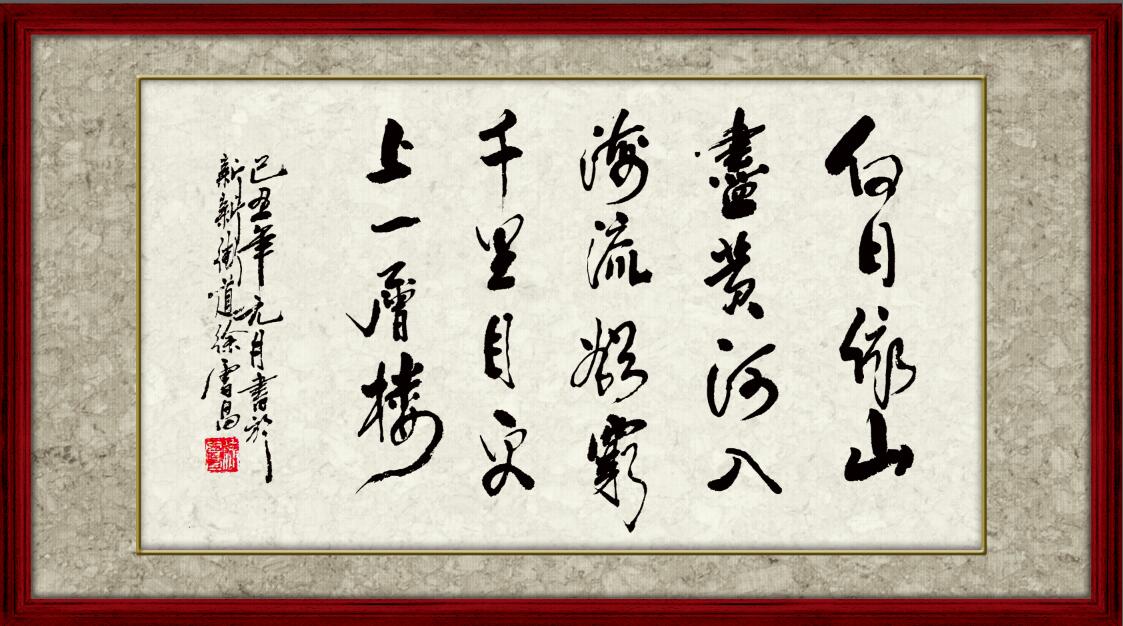 白日依山
盡黄河入
海流欲窮
千里目更
上一層楼
己丑年元月書於
新新街道徐昌